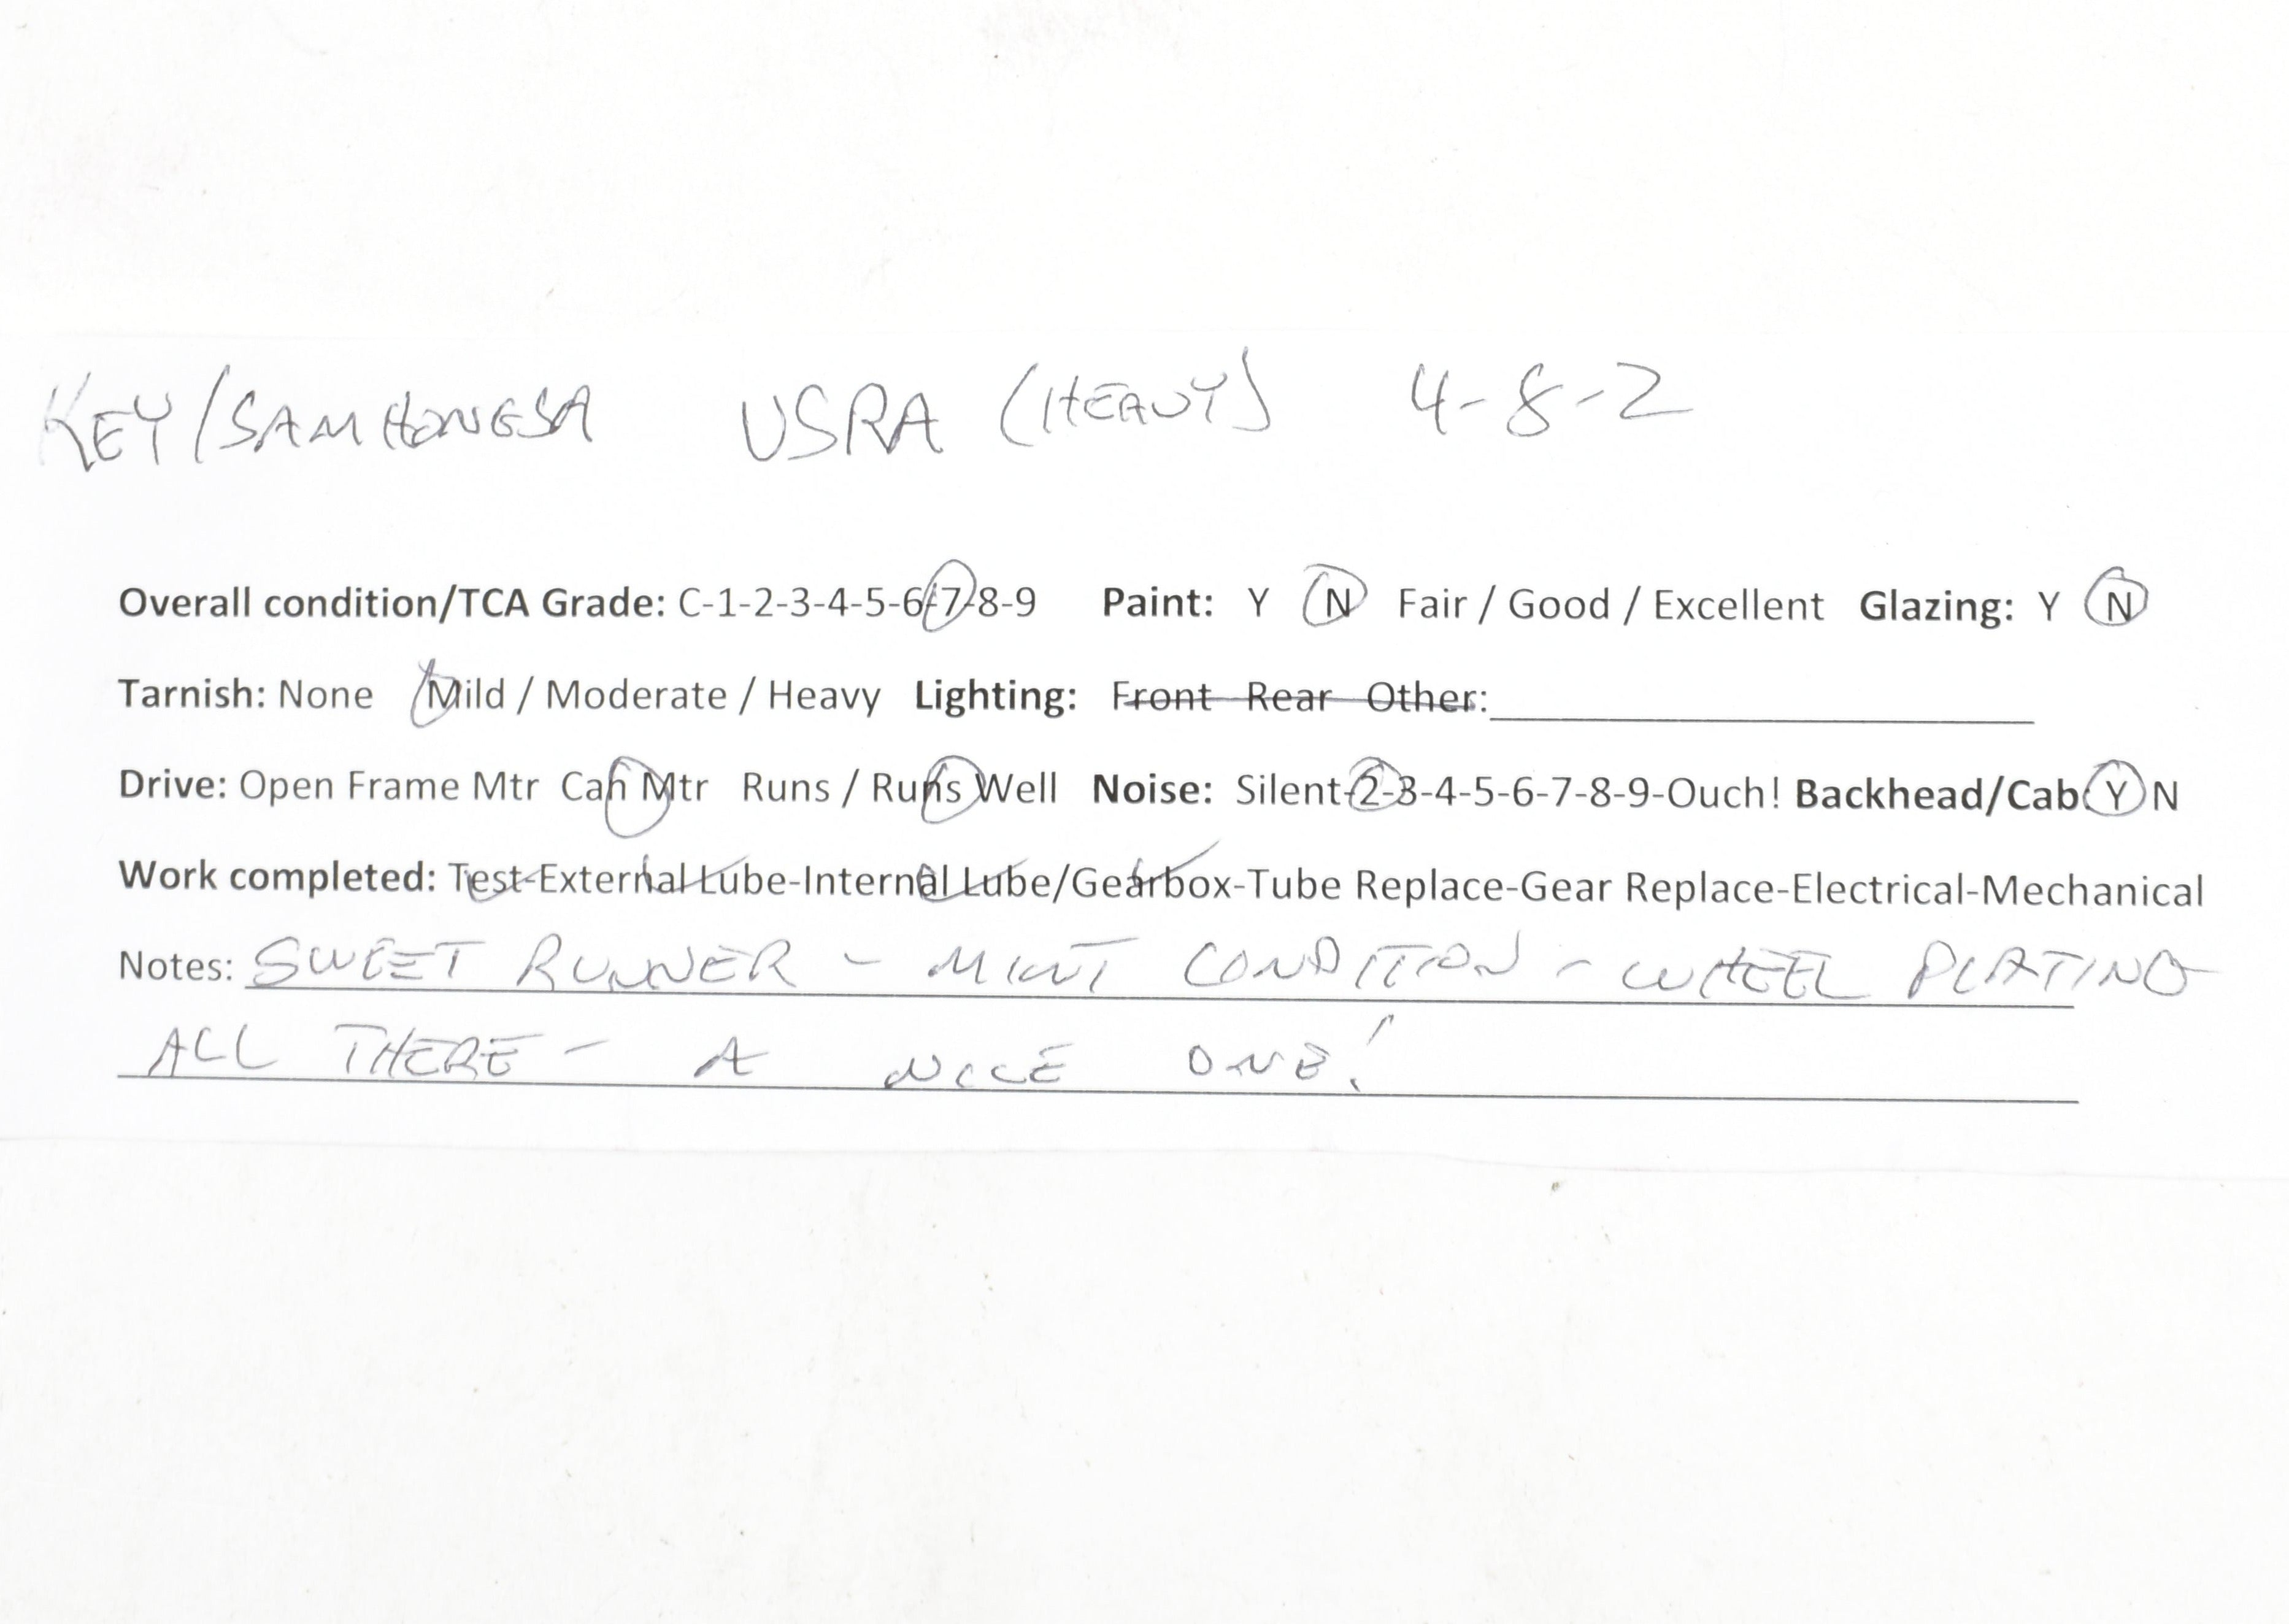 KEY/SAMHONGSA USRA (HEAVY) 4-8-2
Overall condition/TCA Grade: C-1-2-3-4-5-6-7-8-9 Paint: Y N Fair / Good / Excellent Glazing: Y N
Tarnish: None Mild / Moderate / Heavy Lighting: Front Rear Other:
Drive: Open Frame Mtr Can Mtr Runs / Runs Well Noise: Silent-2-3-4-5-6-7-8-9-Ouch! Backhead/Cab: Y N
Work completed: Test-External Lube-Internal Lube/Gearbox-Tube Replace-Gear Replace-Electrical-Mechanical
Notes: SWEET RUNNER - MINT CONDITION - WHEEL PLATING
ALL THERE - A NICE ONE!